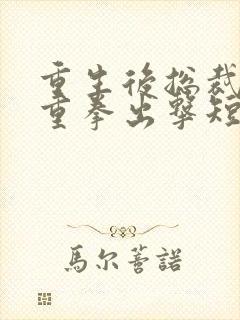 重生後总裁
重拳出擊短
馬尔蓍諾